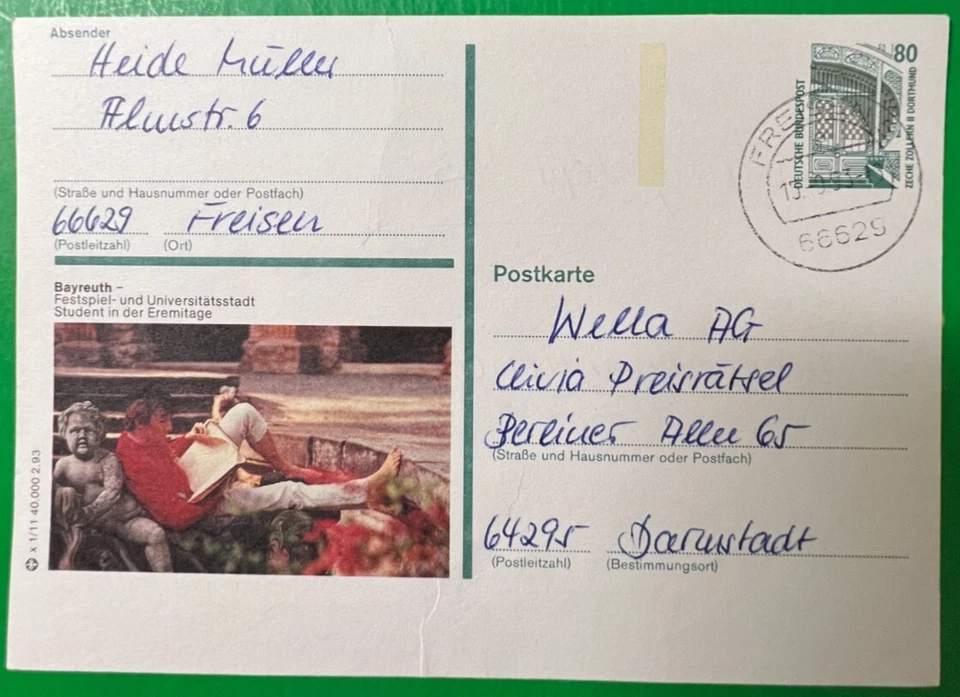 Absender
Heide Müller
Almstr. 6
(Straße und Hausnummer oder Postfach)
66629 Freisen
(Postleitzahl) (Ort)
Bayreuth –
Festspiel- und Universitätsstadt
Student in der Eremitage
x 1/11 40.000 2.93
80
DEUTSCHE BUNDESPOST
ZECHE ZOLLERN II DORTMUND
66629
Postkarte
Wella AG
Preisrätsel
Berliner Allee 65
(Straße und Hausnummer oder Postfach)
64295 Darmstadt
(Postleitzahl) (Bestimmungsort)